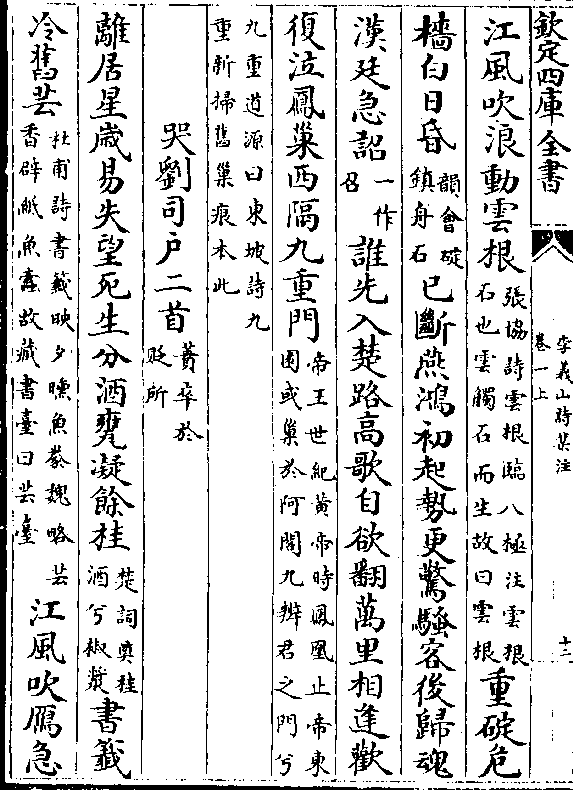 欽定四庫全書
李義山詩集注
卷一上
十二
江風吹浪動雲根張協詩雲根臨八極注雲根石也雲觸石而生故曰雲根重碇危
檣白日昏韻會碇鎮舟石已斷燕鴻初起勢更驚騷客後歸魂
漢廷急詔一作召誰先入楚路高歌自欲翻萬里相逢歡
復泣鳳巢西隔九重門帝王世紀黃帝時鳳凰止帝東園或巢於阿閣九辨君之門兮
九重道源曰東坡詩九重新掃舊巢痕本此
哭劉司戶二首蕡卒於貶所
離居星歲易失望死生分酒甕凝餘桂楚詞奠桂酒兮椒漿書籤
冷舊芸杜甫詩書籤映夕曛魚豢魏略芸香辟紙魚蠹故藏書臺曰芸臺江風吹鴈急